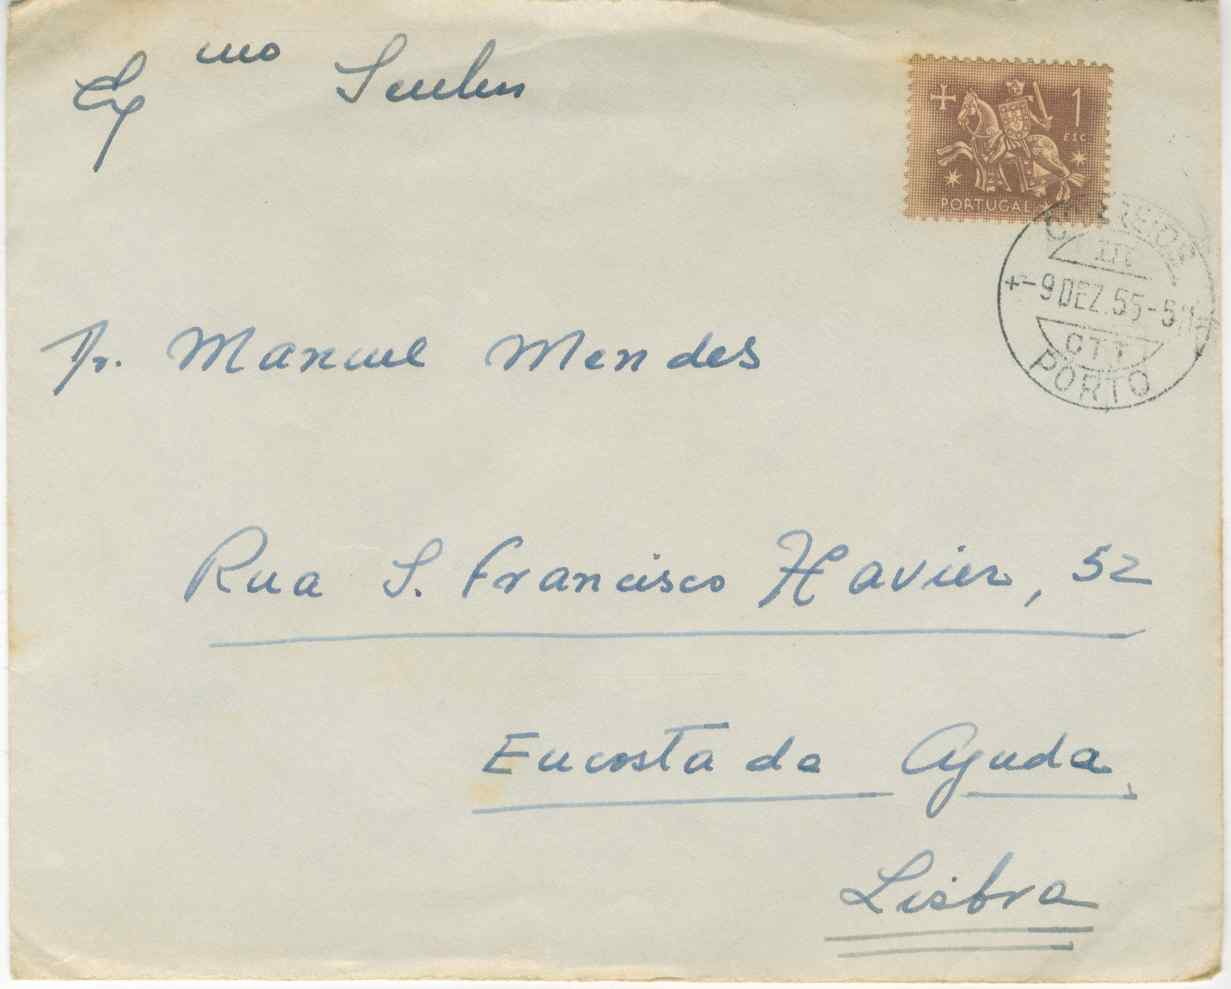 Exmo Senhor
1
ESC.
PORTUGAL
CORREIOS
-9 DEZ. 55-5
CTT
PORTO
Dr. Manuel Mendes
Rua S. Francisco Xavier, 52
Encosta da Ajuda
Lisboa